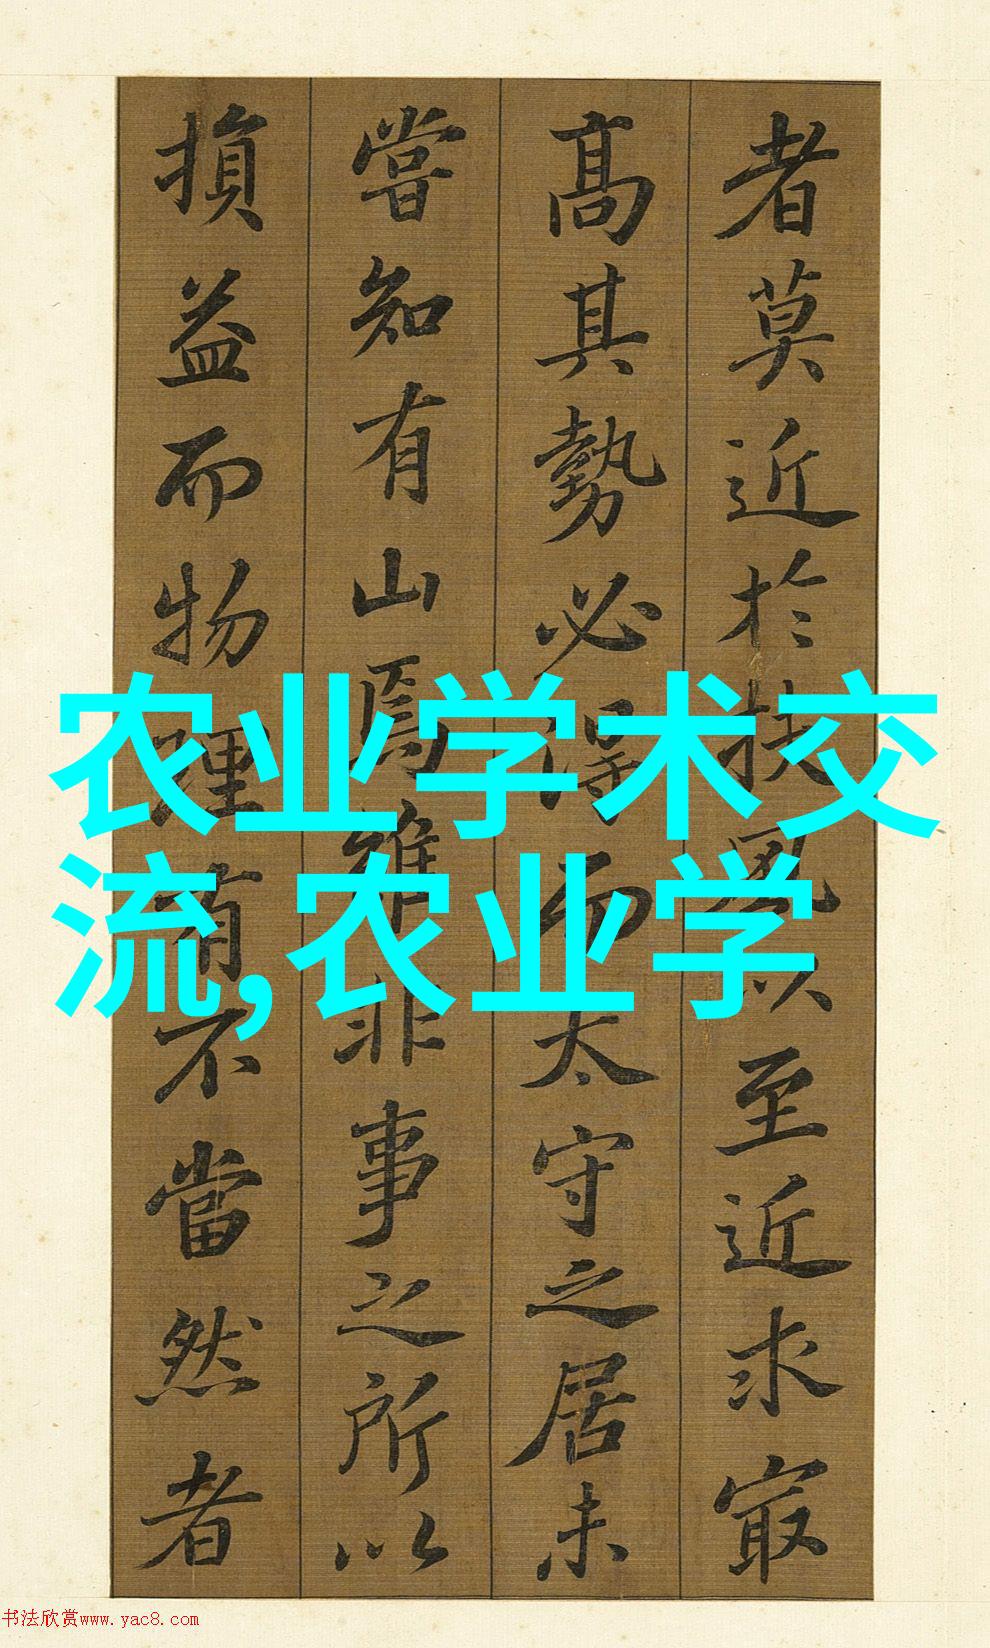 者莫近於扶風以至近求最
高其勢必得而太守之居未
嘗知有山焉雖非事之所以
損益而物理有不當然者
农业学术交
流,农业学
书法欣赏www.yac8.com